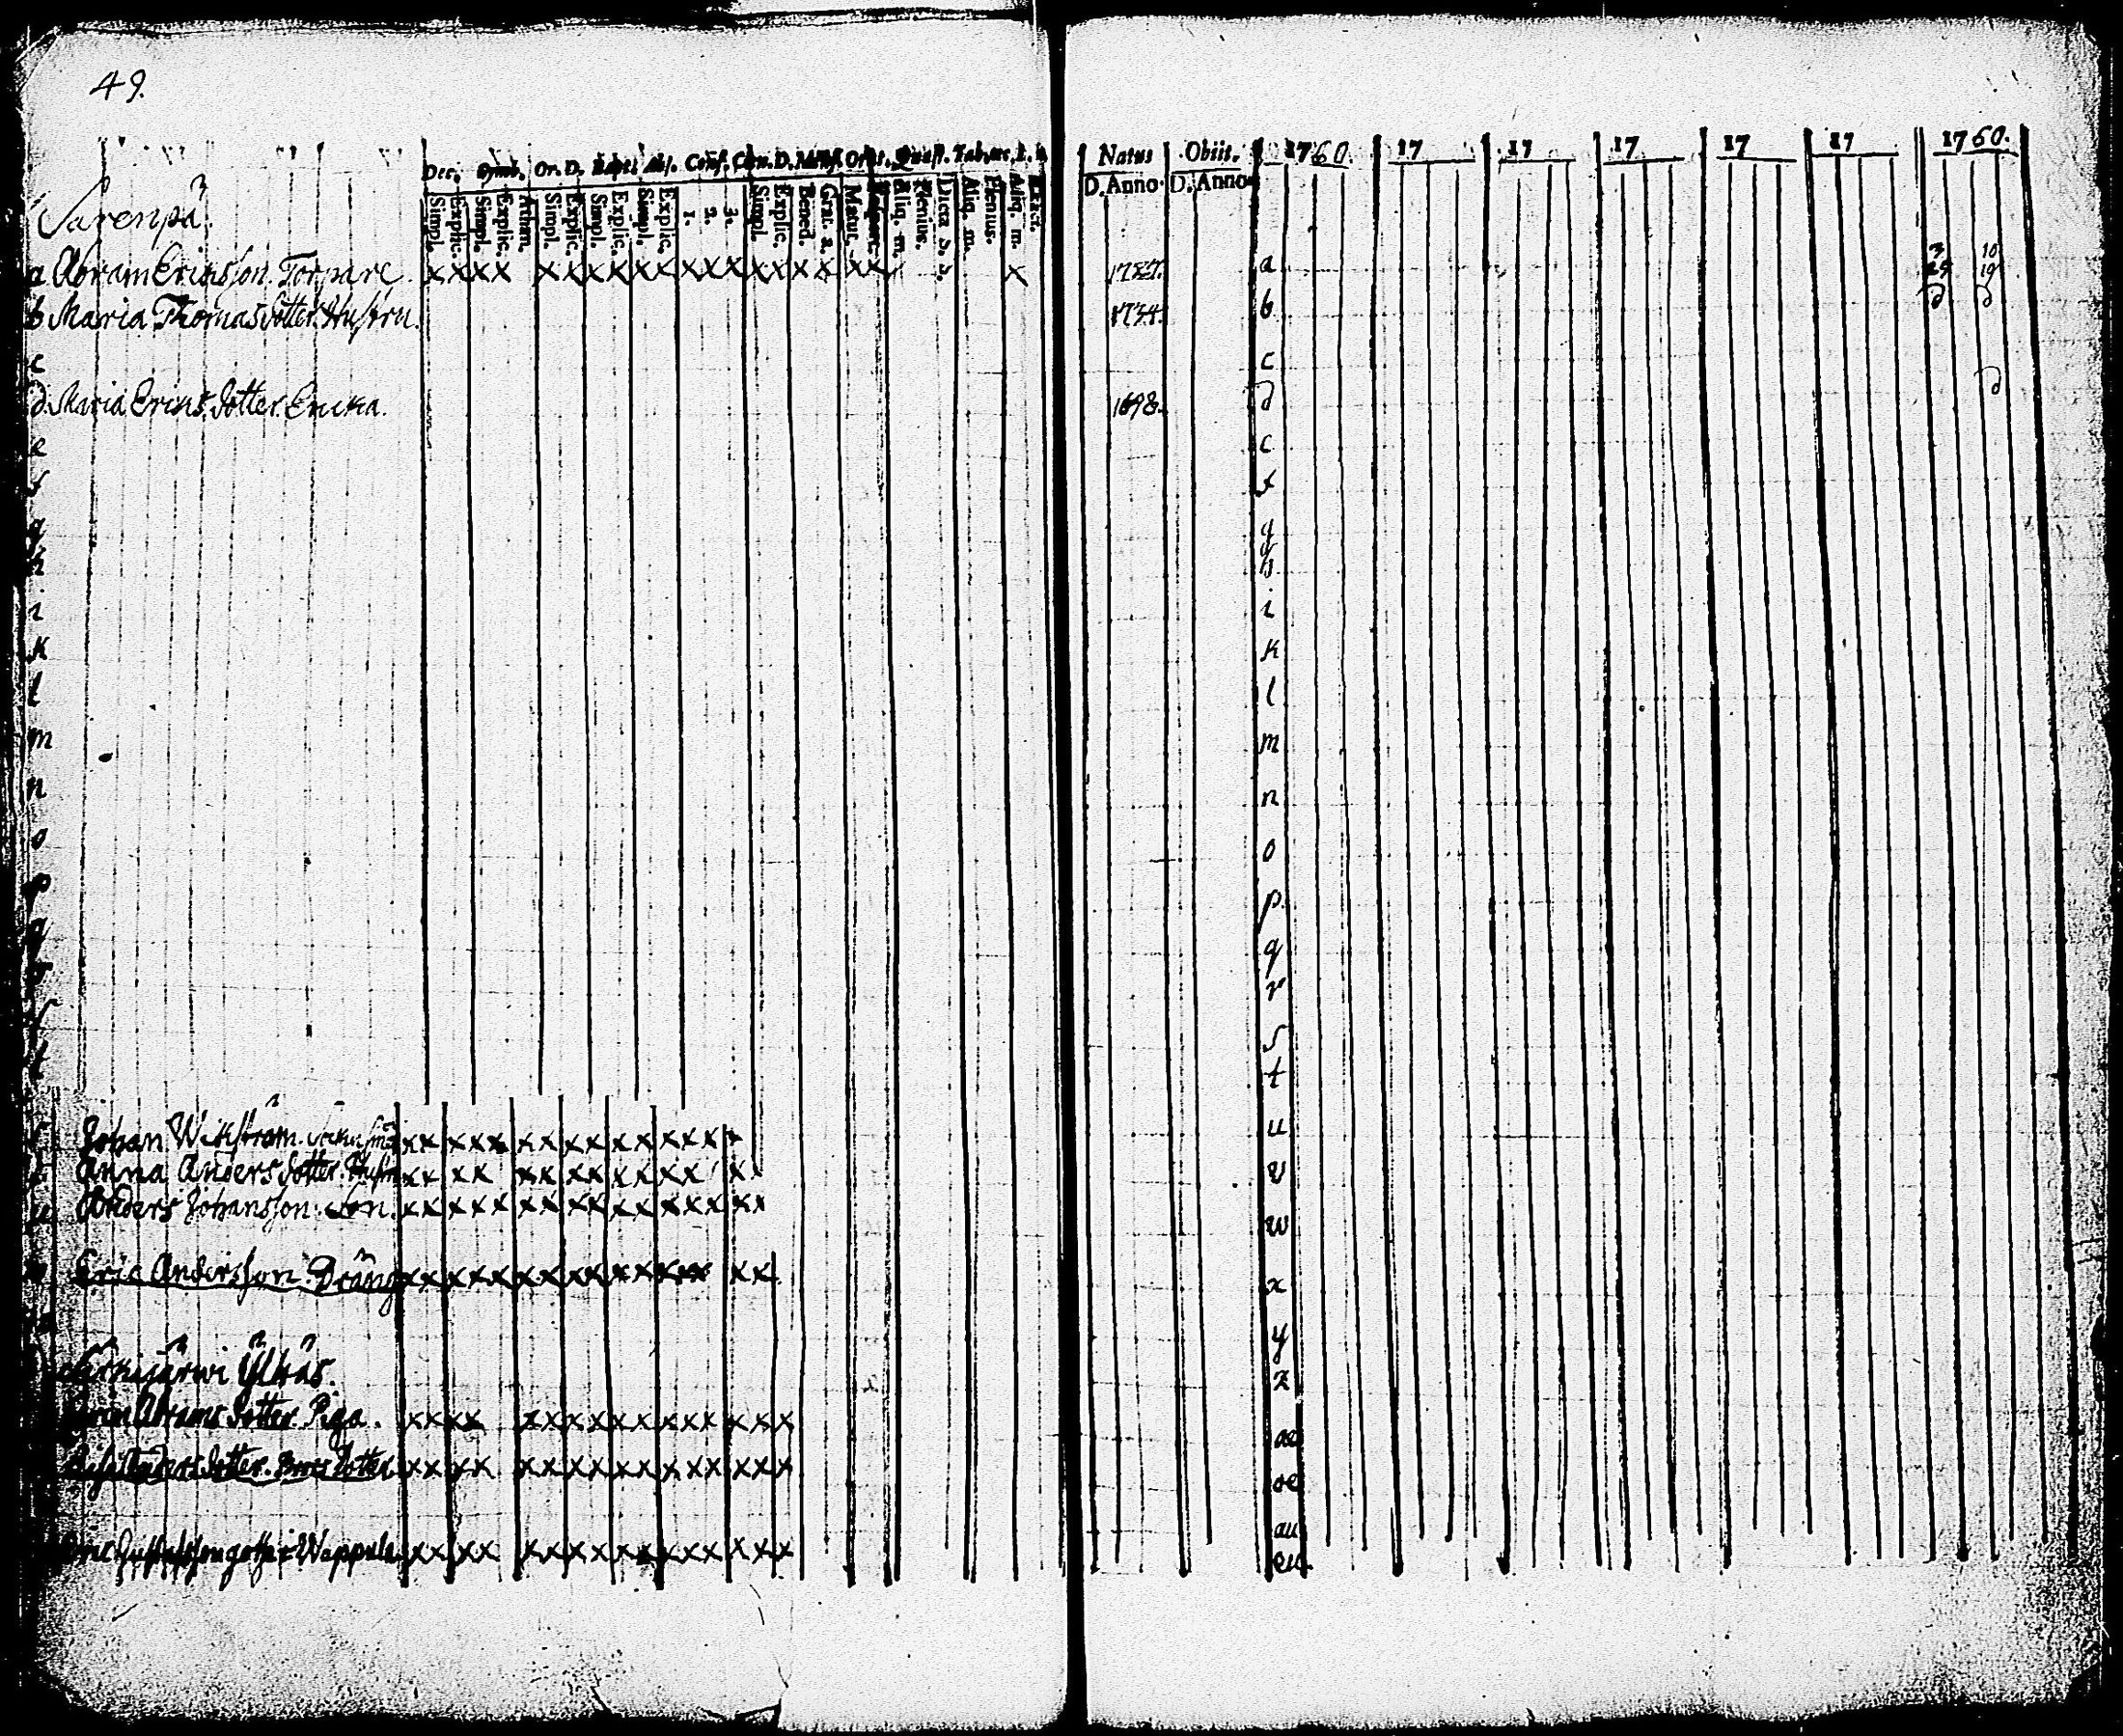 49.
Dec. Symb. Or. D. Bapt. Abs. Conf. Cœn. D. Mens. Orat. Quæst. Tab. œc.
Simpl. Explic. Simpl. Explic. Athan. Simpl. Explic. Simpl. Explic. Simpl. Explic. 1. 2. 3. Simpl. Explic. Bened. Grat. a. Matut. Vespert. Aliq. m. Plenius. Dicta S. S. Aliq. m. Plenius. Aliq. m. Exact.
Natus Obiit. 1760. 17 17 17 17 17 1760.
D. Anno. D. Anno.
Sarenpä.
a Abram Ericsson. Torpare x x x x x x x x x x x x x x x x x x x x 1727. a 3 10
29 19
b Maria Thomas Dotter. Hustru. 1734. b d d
c c
d. Maria Erics Dotter. Encka. 1698. d d
e e
f f
g g
h h
i i
k k
l l
m m
n n
o o
p p.
q q
r r
s s
t t
Johan Wikström. x x x x x x x x x x x x x x x x u
Anna Anders Dotter. Hustru x x x x x x x x x x x x x x v
Anders Johansson. Son. x x x x x x x x x x x x x x x x w
Eric Andersson. Dräng x x x x x x x x x x x x x x x x x
y
z
Abrams Dotter. Piga. x x x x x x x x x x x x x x x x æ
Anders Dotter. x x x x x x x x x x x x x x x x oe
au
Wappula x x x x x x x x x x x x x x x x eu